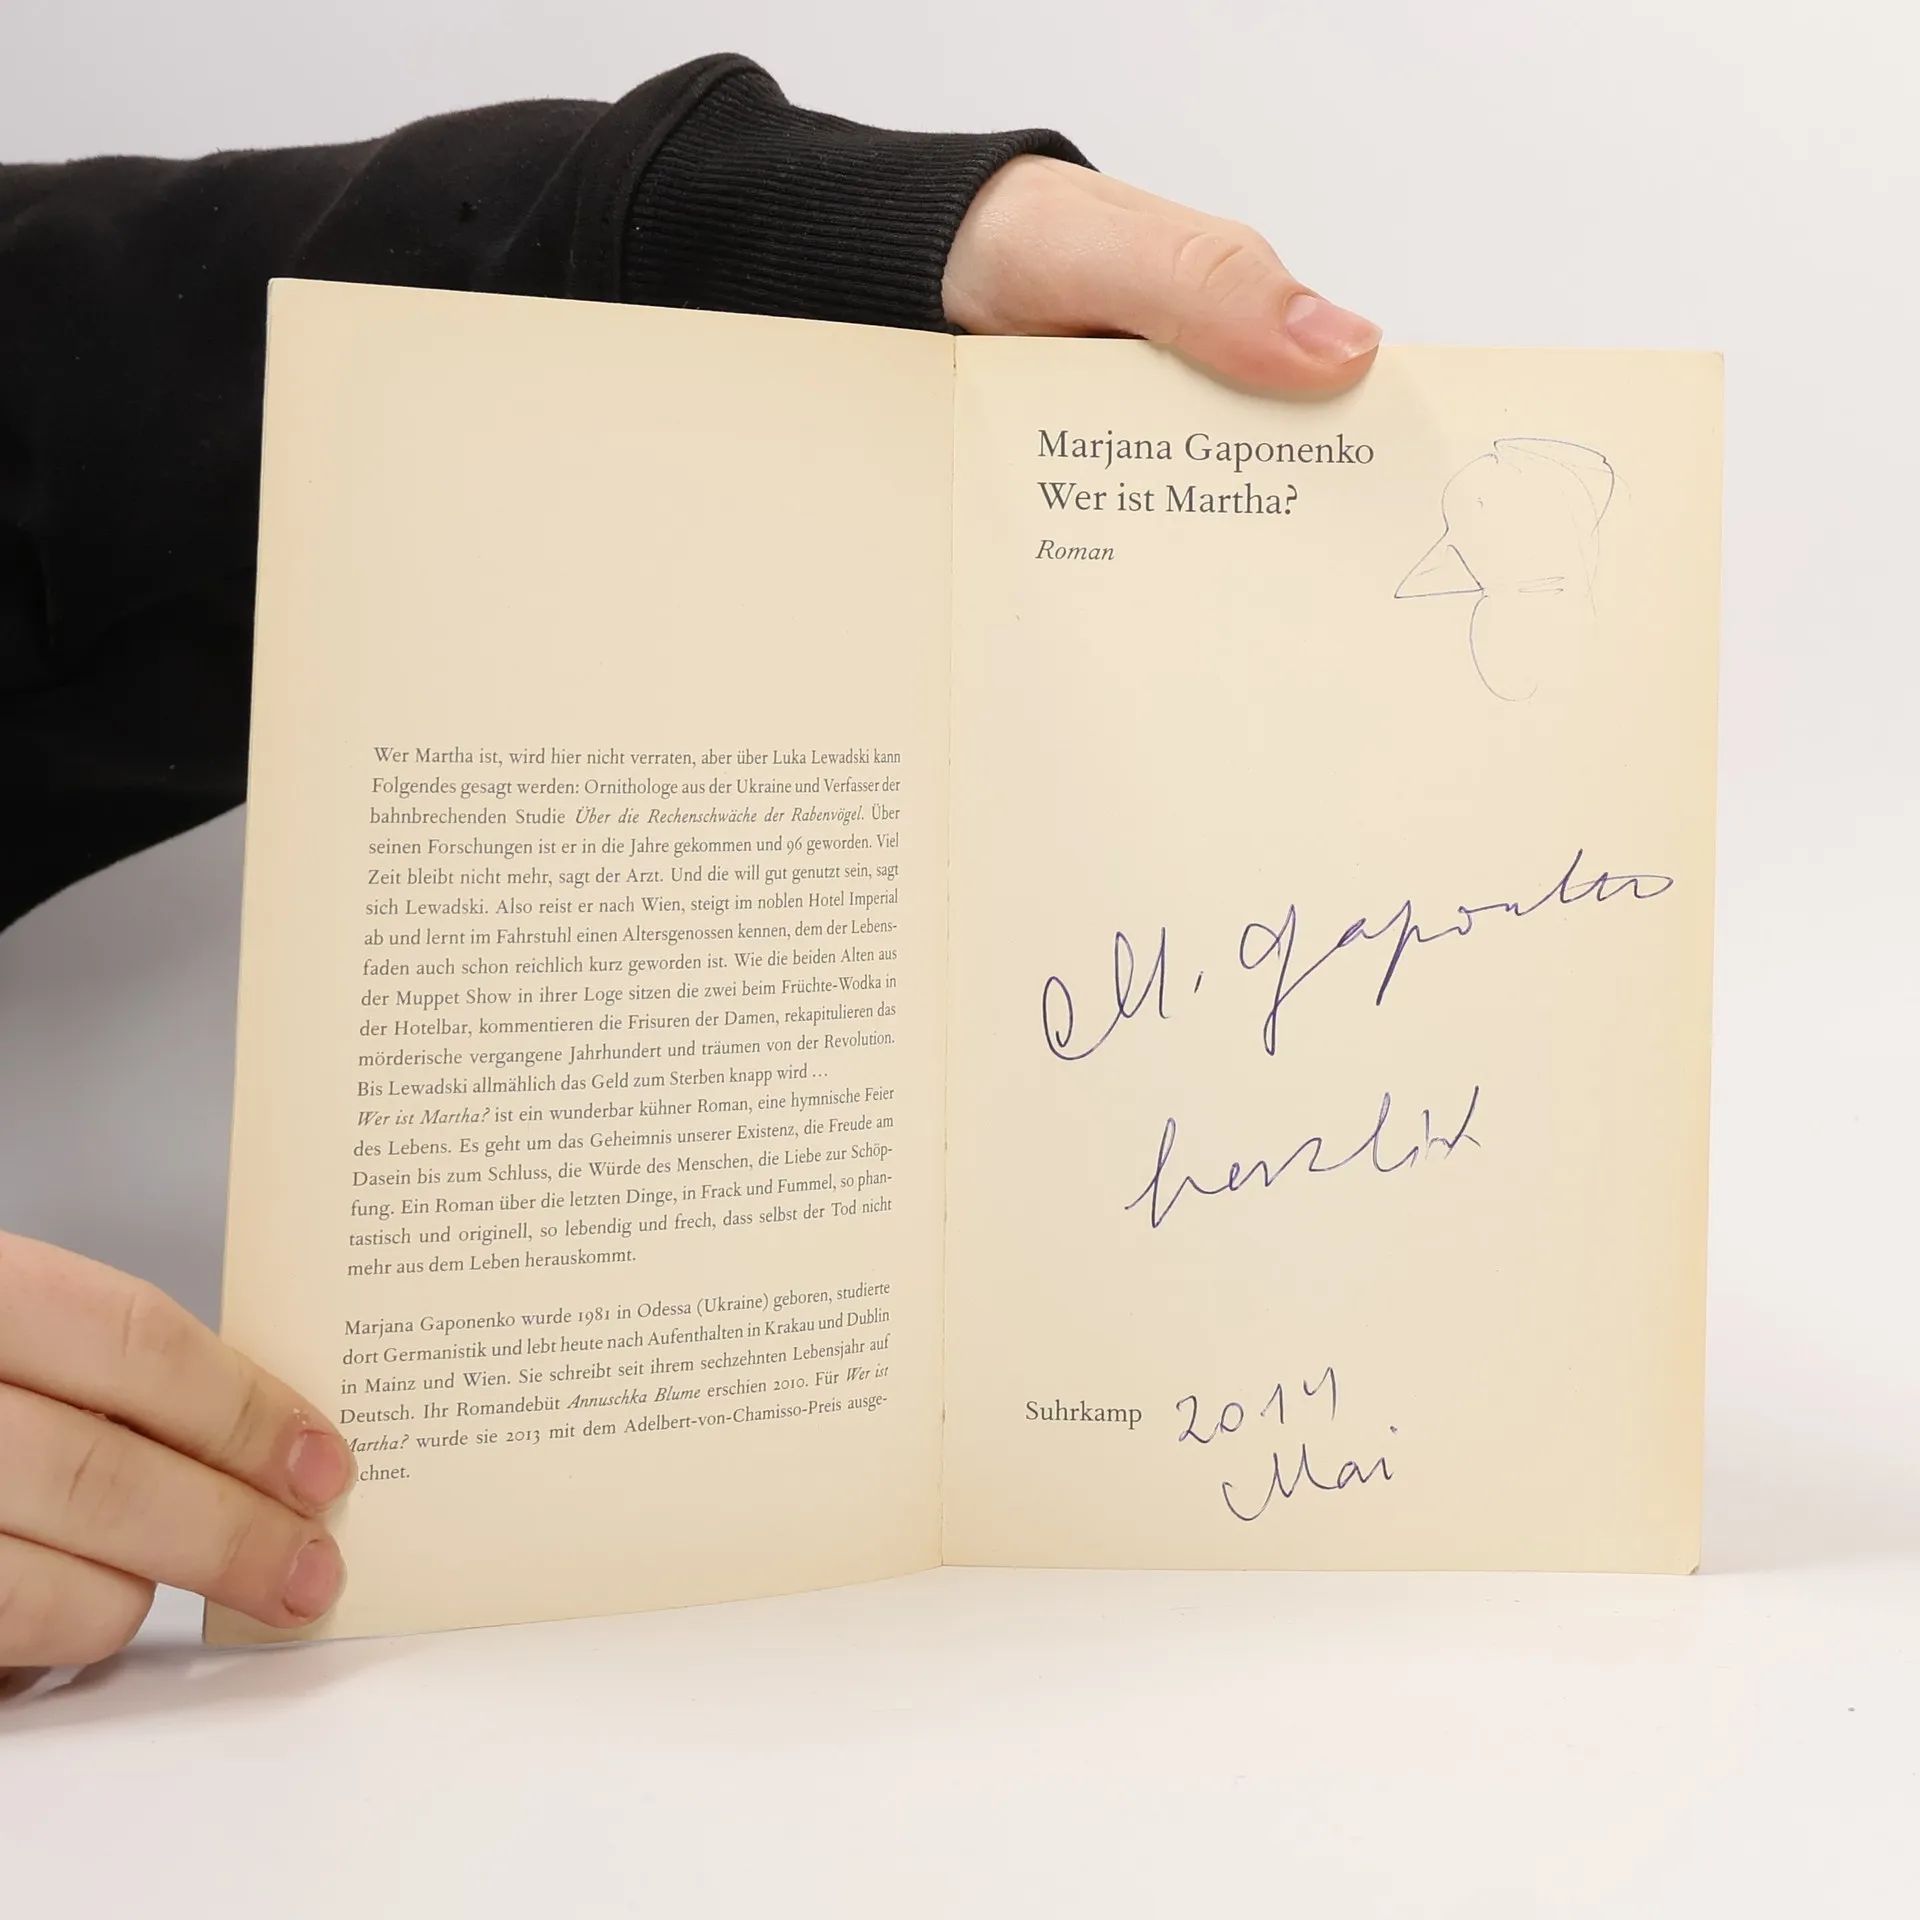 Wer Martha ist, wird hier nicht verraten, aber über Luka Lewadski kann
Folgendes gesagt werden: Ornithologe aus der Ukraine und Verfasser der
bahnbrechenden Studie Über die Rechenschwäche der Rabenvögel. Über
seinen Forschungen ist er in die Jahre gekommen und 96 geworden. Viel
Zeit bleibt nicht mehr, sagt der Arzt. Und die will gut genutzt sein, sagt
sich Lewadski. Also reist er nach Wien, steigt im noblen Hotel Imperial
ab und lernt im Fahrstuhl einen Altersgenossen kennen, dem der Lebens-
faden auch schon reichlich kurz geworden ist. Wie die beiden Alten aus
der Muppet Show in ihrer Loge sitzen die zwei beim Früchte-Wodka in
der Hotelbar, kommentieren die Frisuren der Damen, rekapitulieren das
mörderische vergangene Jahrhundert und träumen von der Revolution.
Bis Lewadski allmählich das Geld zum Sterben knapp wird ...
Wer ist Martha? ist ein wunderbar kühner Roman, eine hymnische Feier
des Lebens. Es geht um das Geheimnis unserer Existenz, die Freude am
Dasein bis zum Schluss, die Würde des Menschen, die Liebe zur Schöp-
fung. Ein Roman über die letzten Dinge, in Frack und Fummel, so phan-
tastisch und originell, so lebendig und frech, dass selbst der Tod nicht
mehr aus dem Leben herauskommt.
Marjana Gaponenko wurde 1981 in Odessa (Ukraine) geboren, studierte
dort Germanistik und lebt heute nach Aufenthalten in Krakau und Dublin
in Mainz und Wien. Sie schreibt seit ihrem sechzehnten Lebensjahr auf
Deutsch. Ihr Romandebüt Annuschka Blume erschien 2010. Für Wer ist
Martha? wurde sie 2013 mit dem Adelbert-von-Chamisso-Preis ausge-
chnet.
Marjana Gaponenko
Wer ist Martha?
Roman
M. Gaponenko
herzlich
Suhrkamp 2014
Mai